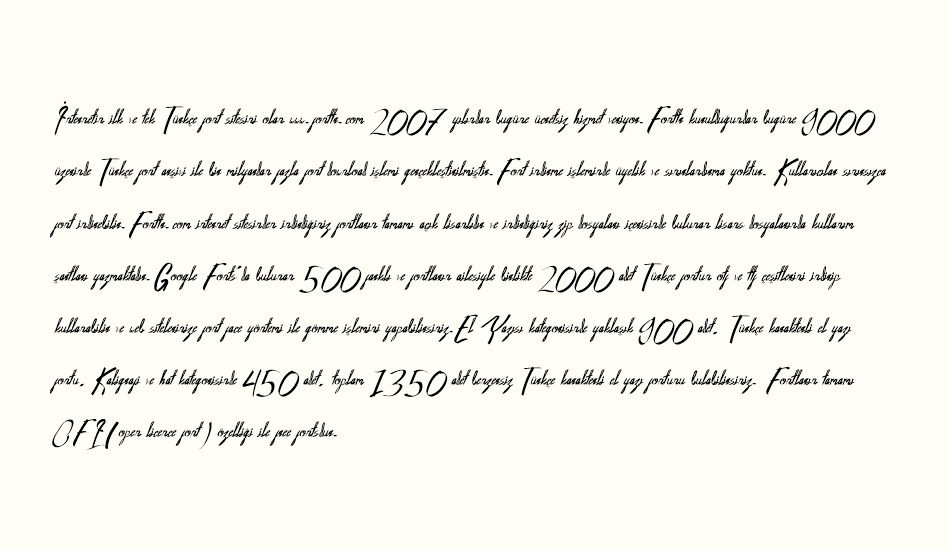 İnternetin ilk ve tek Türkçe font sitesini olan www.fonttr.com 2007 yılından bugüne ücretsiz hizmet veriyor. Fonttr kurulduğundan bugüne 9000
üzerinde Türkçe font arşivi ile bin milyardan fazla font download işlemi gerçekleştirilmiştir. Font indirme işlemirde üyelik ve sınırlandırma yoktur. Kullanıcılar sınırsızca
font indirebilir. Fonttr.com internet sitesinden indirdiğiniz fontların tamamı açık lisanslıdır ve indirdiğiniz zip dosyaları içerisinde bulunan lisans dosyalarında kullanım
şartları yazmaktadır. Google Fonts'da bulunan 500 farklı ve fontların ailesiyle birlikte 2000 adet Türkçe fontun otf ve ttf çeşitlerini indirip
kullanabilir ve web sitelerinize font face yöntemi ile gömme işlemini yapabilirsiniz. El Yazısı kategorisinde yaklaşık 900 adet, Türkçe karakterli el yazı
fontu, Kaligrafi ve hat kategorisinde 450 adet, toplam 1350 adet benzersiz Türkçe karakterli el yazı fontunu bulabilirsiniz. Fontların tamamı
OFL(open licence font) özelliği ile free fontsdur.